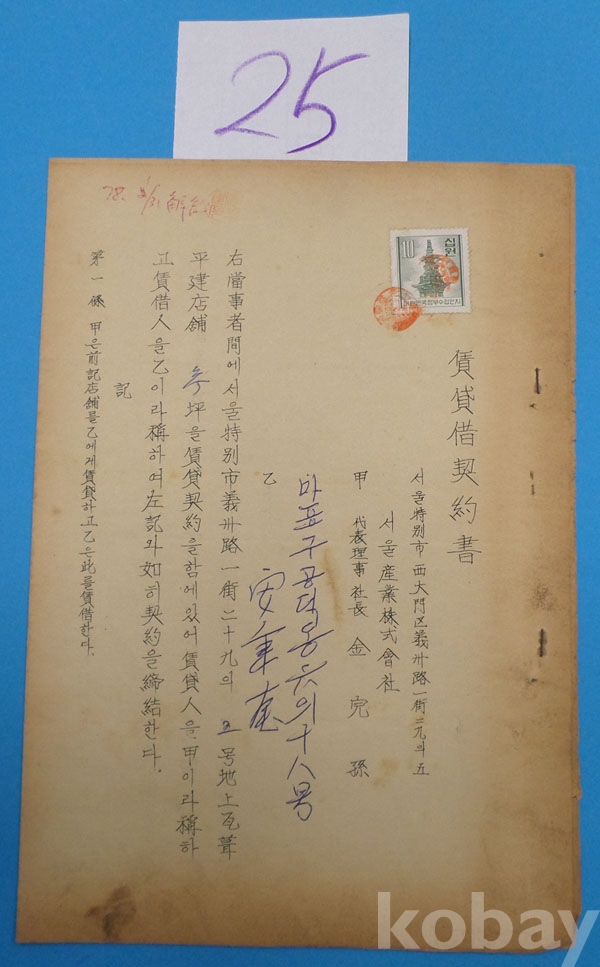 25
10
십원
대한민국정부수입인지
賃貸借契約書
서울特別市西大門区義州路一街二九의五
서울産業株式會社
甲 代表理事社長 金 宛 孫
마포구공덕동六의十八号
乙
右當事者間에서울特別市義州路一街二十九의 号地上瓦葺
平建店舖 坪을賃貸契約을함에있어賃貸人을甲이라稱하
고賃借人을乙이라稱하여左記와如히契約을締結한다.
記
第一條 甲은前記店舖를乙에게賃貸하고乙은此를賃借한다.
kobay